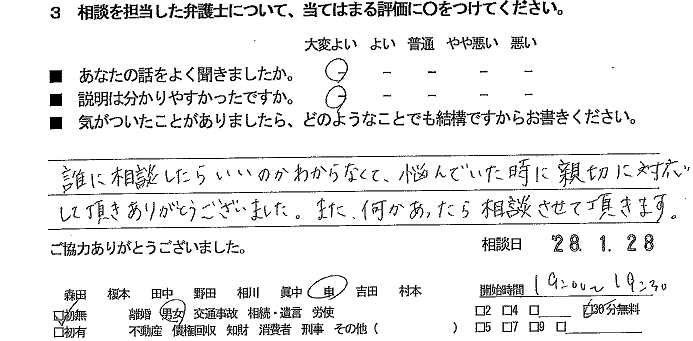 3 相談を担当した弁護士について、当てはまる評価に〇をつけてください。
大変よい よい 普通 やや悪い 悪い
■ あなたの話をよく聞きましたか。 - - - - -
■ 説明は分かりやすかったですか。 - - - - -
■ 気がついたことがありましたら、どのようなことでも結構ですからお書きください。
誰に相談したらいいのかわからなくて、悩んでいた時に親切に対応
して頂きありがとうございました。また、何かあったら相談させて頂きます。
ご協力ありがとうございました。 相談日 '28. 1. 28
森田 榎本 田中 野田 相川 眞中 申 吉田 村本 開始時間 19:00~19:30
□初無 離婚 男女 交通事故 相続・遺言 労使 □2 □4 □ □30分無料
□初有 不動産 債権回収 知財 消費者 刑事 その他 ( ) □5 □7 □9 □